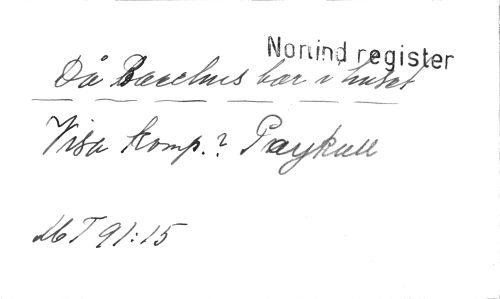 Norlind register
Då Bacchus bar i huset
Visa komp.? Paykull
MT 91:15